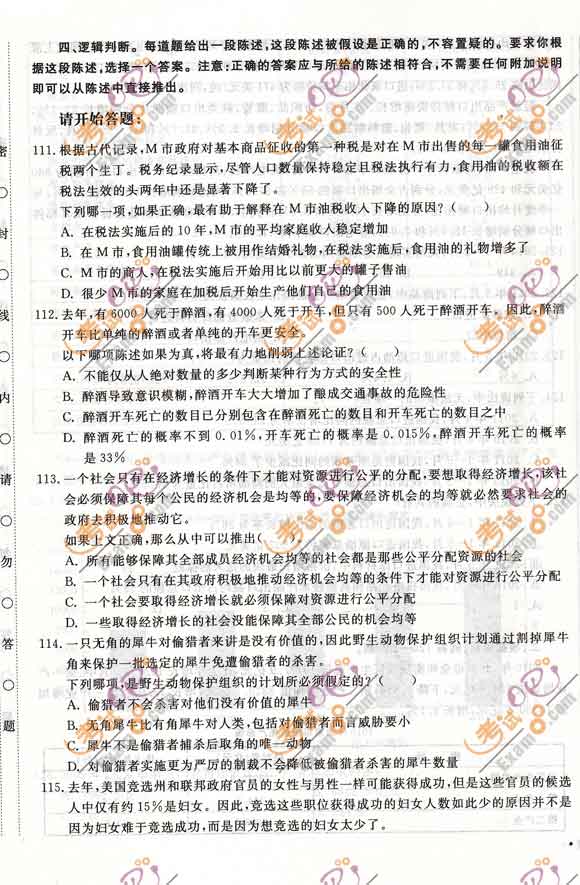 四、逻辑判断。每道题给出一段陈述,这段陈述被假设是正确的,不容置疑的。要求你根
据这段陈述,选择一个答案。注意:正确的答案应与所给的陈述相符合,不需要任何附加说明
即可以从陈述中直接推出。
请开始答题:
111.根据古代记录,M市政府对基本商品征收的第一种税是对在M市出售的每一罐食用油征
税两个生丁。税务纪录显示,尽管人口数量保持稳定且税法执行有力,食用油的税收额在
税法生效的头两年中还是显著下降了。
下列哪一项,如果正确,最有助于解释在M市油税收入下降的原因?( )
A. 在税法实施后的10年,M市的平均家庭收入稳定增加
B. 在M市,食用油罐传统上被用作结婚礼物,在税法实施后,食用油的礼物增多了
C. M市的商人,在税法实施后开始用比以前更大的罐子售油
D. 很少M市的家庭在加税后开始生产他们自己的食用油
112.去年,有6000人死于醉酒,有4000人死于开车,但只有500人死于醉酒开车。因此,醉酒
开车比单纯的醉酒或者单纯的开车更安全。
以下哪项陈述如果为真,将最有力地削弱上述论证?( )
A. 不能仅从人绝对数量的多少判断某种行为方式的安全性
B. 醉酒导致意识模糊,醉酒开车大大增加了酿成交通事故的危险性
C. 醉酒开车死亡的数目已分别包含在醉酒死亡的数目和开车死亡的数目之中
D. 醉酒死亡的概率不到0.01%,开车死亡的概率是0.015%,醉酒开车死亡的概率
是33%
113.一个社会只有在经济增长的条件下才能对资源进行公平的分配,要想取得经济增长,该社
会必须保障其每个公民的经济机会是均等的,要保障经济机会的均等就必然要求社会的
政府去积极地推动它。
如果上文正确,那么从中可以推出( )。
A. 所有能够保障其全部成员经济机会均等的社会都是那些公平分配资源的社会
B. 一个社会只有在其政府积极地推动经济机会均等的条件下才能对资源进行公平分配
C. 一个社会要取得经济增长就必须保障对资源进行公平分配
D. 一些取得经济增长的社会没能保障其全部公民的机会均等
114.一只无角的犀牛对偷猎者来讲是没有价值的,因此野生动物保护组织计划通过割掉犀牛
角来保护一批选定的犀牛免遭偷猎者的杀害。
下列哪项,是野生动物保护组织的计划所必须假定的?( )
A. 偷猎者不会杀害对他们没有价值的犀牛
B. 无角犀牛比有角犀牛对人类,包括对偷猎者而言威胁要小
C. 犀牛不是偷猎者捕杀后取角的唯一动物
D. 对偷猎者实施更为严厉的制裁不会降低被偷猎者杀害的犀牛数量
115.去年,美国竞选州和联邦政府官员的女性与男性一样可能获得成功,但是这些官员的候选
人中仅有约15%是妇女。因此,竞选这些职位获得成功的妇女人数如此少的原因并不是
因为妇女难于竞选成功,而是因为想竞选的妇女太少了。
密
封
线
内
请
勿
答
题
考试
Exam8.com